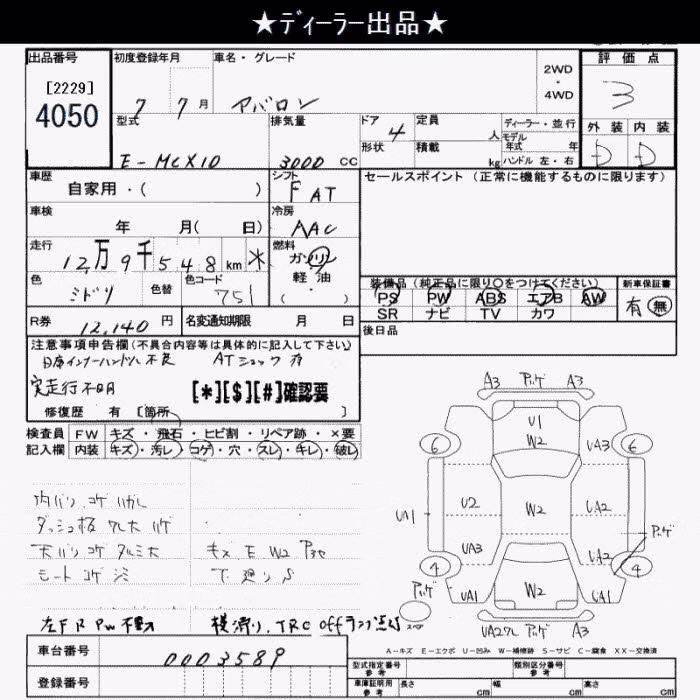 ★ディーラー出品★
出品番号
[2229]
4050
初度登録年月
7 7月
車名・グレード
アバロン
2WD
・
4WD
評価点
3
外装 内装
D D
型式
E-MCX10
排気量
3000 CC
ドア 4
形状
定員 人
積載 kg
ディーラー・並行
モデル年式 年
ハンドル 左・右
車歴
自家用・( )
シフト
F AT
セールスポイント (正常に機能するものに限ります)
車検
年 月( 日)
冷房
AAC
走行
12万9千548 km *
燃料
ガソリン
軽油
( )
色
ミドリ
色替
色コード
751
装備品 (純正品に限り○をつけてください)
PS PW ABS エアB AW
SR ナビ TV カワ
新車保証書
有 無
R券 12,140 円
名変通知期限 月 日
後日品
注意事項申告欄 (不具合内容等は具体的に記入して下さい)
ATショック有
実走行不明
[*][$][#]確認要
修復歴 有 [箇所 ]
検査員記入欄
FW キズ・飛石・ヒビ割・リペア跡・×要
内装 キズ・汚レ・コゲ・穴・スレ・キレ・破レ
内バリ コゲ ハガレ
ダッシュ板 ワレ大 ハゲ
天バリ コゲ タルミ大
シート コゲ シミ
キズ E W2 P3セ
下廻りS
左FR PW不動
横滑り、TRC Offランプ点灯
A3 ハゲ A3
U1
W2
6
UA3
6
UA1
U2
W2
UA2
UA3
UA2
ハゲ
4
4
UA1
W2
UA1
ハゲ
スペア
UA2ワレ ハゲ A3
A−キズ E−エクボ U−凹み W−補修跡 S−サビ C−腐食 XX−交換済
車台番号
0003589
登録番号
型式指定番号
参考
類別区分番号
参考
車庫証明用
参考
長さ cm
幅 cm
高さ cm